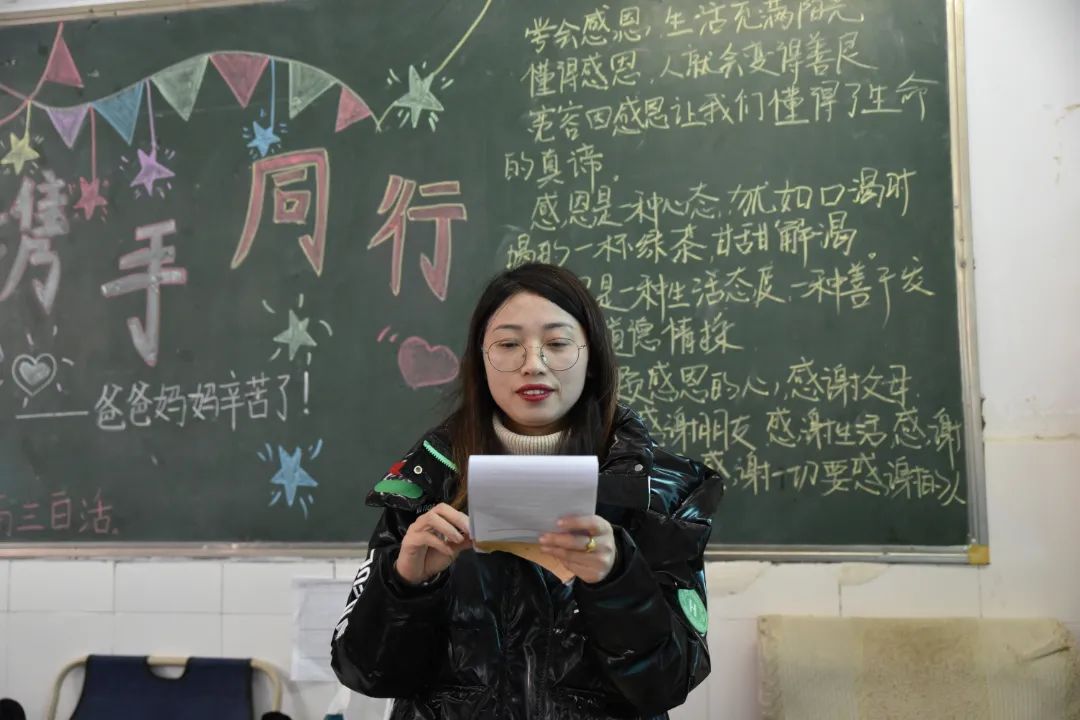 携手同行
爸爸妈妈辛苦了!
学会感恩,生活充满阳光
懂得感恩,人就会变得善良
宽容因感恩让我们懂得了生命
的真谛。
感恩是一种心态,犹如口渴时
喝的一杯绿茶,甘甜解渴。
是一种生活态度,一种善于发
道德情操
感恩的心,感谢父母
感谢朋友 感谢生活 感谢
感谢一切要感谢的人
H